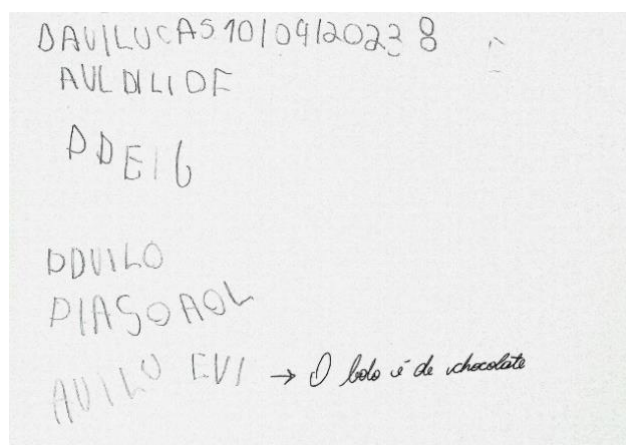 DAVILUCAS 10/04/2023 8
AVL DILIDE
DDEIG
DDVILO
PIASOAOL
AVILO EVI → O bolo é de chocolate